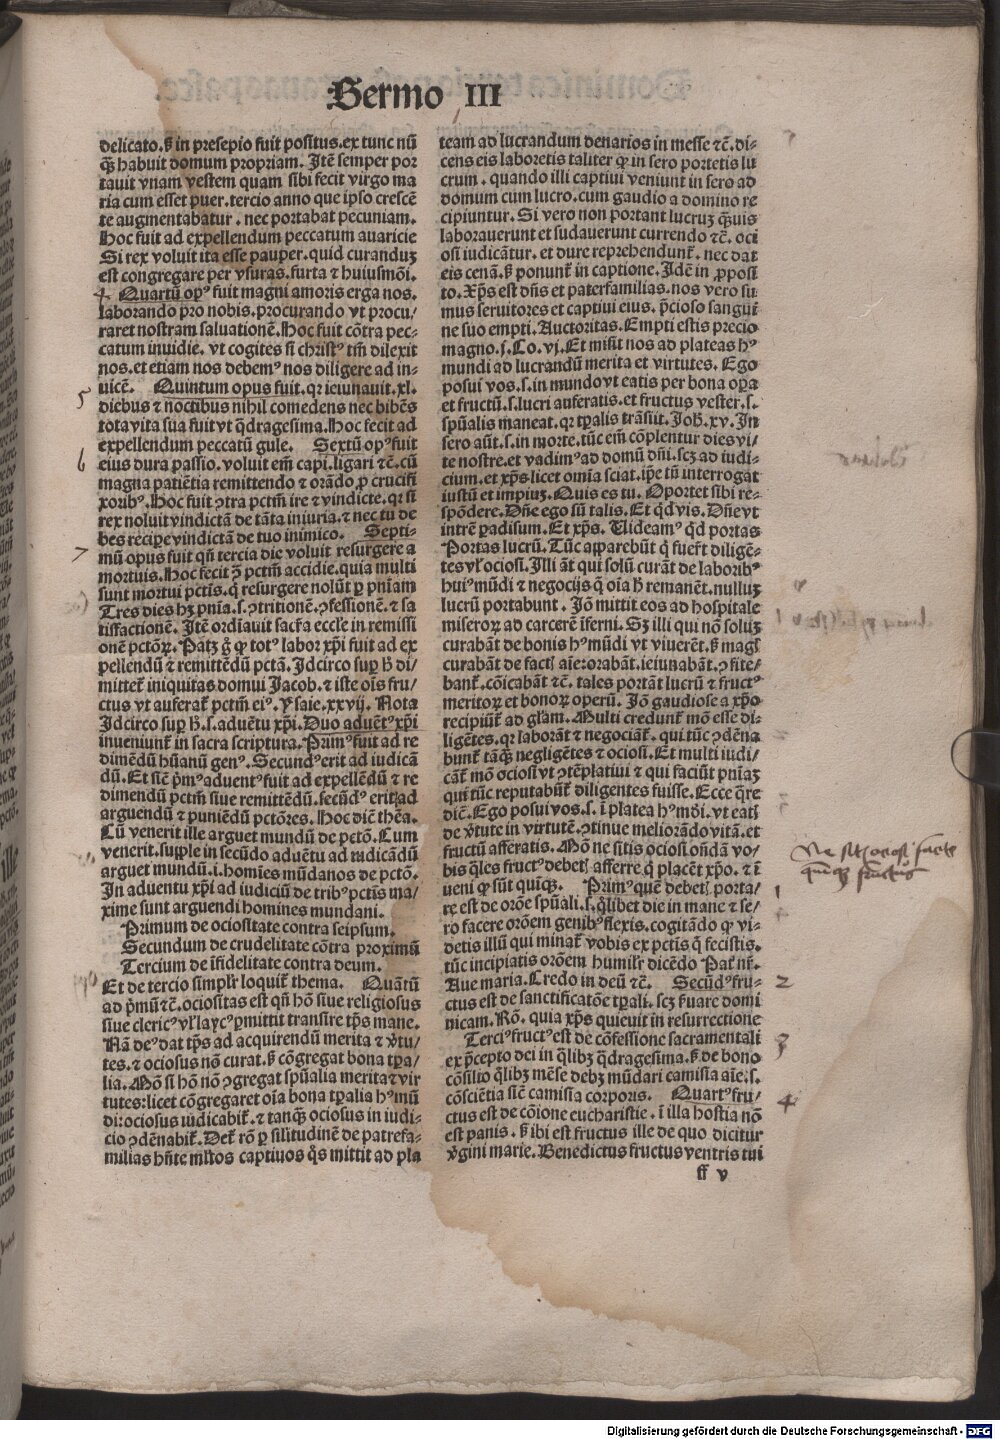 Sermo III
delicato. ß in presepio fuit positus. ex tunc nū
q̄ȝ habuit domum propriam. Itē semper por
tauit vnam vestem quam sibi fecit virgo ma
ria cum esset puer. tercio anno que ipso crescē
te augmentabatur. nec portabat pecuniam.
Hoc fuit ad expellendum peccatum auaricie
Si rex voluit ita esse pauper. quid curanduȝ
est congregare per vsuras. furta ⁊ huiusmōi.
4 Quartū opꝰ fuit magni amoris erga nos.
laborando pro nobis. procurando vt procu/
raret nostram saluationē. Hoc fuit cōtra pec-
catum inuidie. vt cogites si christꝰ tm̄ dilexit
nos. et etiam nos debemꝰ nos diligere ad in-
uicē. Quintum opus fuit. qꝛ ieiunauit. xl.
5 diebus ⁊ noctibus nihil comedens nec bibēs
tota vita sua fuit vt q̄dragesima. Hoc fecit ad
expellendum peccatū gule. Sextū opꝰ fuit
6 eius dura passio. voluit em̄ capi. ligari ⁊c̄. cū
magna patiētia remittendo ⁊ orādo ꝓ crucifi
xoribꝰ. Hoc fuit ꝯtra pctm̄ ire ⁊ vindicte. qꝛ si
rex noluit vindictā de tāta iniuria. ⁊ nec tu de
bes recipe vindictā de tuo inimico. Septi-
7 mū opus fuit qn̄ tercia die voluit resurgere a
mortuis. Hoc fecit ꝯ̄ pctm̄ accidie. quia multi
sunt mortui pctīs. q̄ resurgere nolūt ꝑ pn̄iam
Tres dies hȝ pn̄ia. s. ꝯtritionē. ꝯfessionē. ⁊ sa
tisfactionē. Itē ordīauit sacr̄a eccle in remissi
onē pctōꝝ. Patȝ g̊ ꝙ totꝰ labor xp̄i fuit ad ex
pellendū ⁊ remittēdū pctā. Idcirco sup̱ h̄ di/
mittet̄ iniquitas domui Jacob. ⁊ iste oīs fru/
ctus vt auferat̄ pctm̄ eiꝰ. ysaie. xxvij. Nota
Idcirco sup̱ h̄. s. aduētu xp̄i. Duo aduētꝰ xp̄i
inueniunt̄ in sacra scriptura. Primꝰ fuit ad re
dimēdū hūanū genꝰ. Secundꝰ erit ad iudicā
dū. Et siē p̄mꝰ aduentꝰ fuit ad expellēdū ⁊ re
dimendū pctm̄ siue remittēdū. secūdꝰ erit ad
arguendū ⁊ puniēdū pctōres. Hoc diē thēa.
Cū venerit ille arguet mundū de pctō. Cum
venerit. supple in secūdo aduētu ad iudicādū
arguet mundū. i. homīes mūdanos de pctō.
In aduentu xp̄i ad iudiciū de tribꝰ pctīs ma/
xime sunt arguendi homines mundani.
Primum de ociositate contra seipsum.
Secundum de crudelitate cōtra proximū
Tercium de īfidelitate contra deum.
Et de tercio simplr̄ loquit̄ thema. Quantū
ad p̄mū ⁊c̄. ociositas est qn̄ hō siue religiosus
siue clericꝰ vl̓ laycꝰ ꝑmittit transire tp̄s mane.
Nā deꝰ dat tp̄s ad acquirendū merita ⁊ v̓tu/
tes. ⁊ ociosus nō curat. ß cōgregat bona tp̱ra/
lia. Mō si hō nō ꝯgregat sp̄ualia merita ⁊ vir
tutes: licet cōgregaret oīa bona tp̱ralia hꝰ mū
di: ociosus iudicabit̄. ⁊ tanqȝ ociosus in iudi-
cio ꝯdēnabit̄. Det̄ rō ꝑ silitudinē de patrefa-
milias hn̄te ml̓tos captiuos q̄s mittit ad pla
team ad lucrandum denarios in messe ⁊c̄. di-
cens eis laboretis taliter ꝙ in sero portetis lu
crum. quando illi captiui veniunt in sero ad
domum cum lucro. cum gaudio a domino re
cipiuntur. Si vero non portant lucruȝ q̄ȝuis
laborauerunt et sudauerunt currendo ⁊c̄. oci
osi iudicātur. et dure reprehendunt̄. nec dat
eis cenā. ß ponunt̄ in captione. Idē in ꝓposi
to. Xp̄s est dn̄s et paterfamilias. nos vero su
mus seruitores et captiui eius. p̄cioso sangui
ne suo empti. Auctoritas. Empti estis precio
magno. j. Co. vj. Et misit nos ad plateas hꝰ
mundi ad lucrandū merita et virtutes. Ego
posui vos. s. in mundo vt eatis per bona oꝑa
et fructū. s. lucri auferatis. et fructus vester. s.
sp̄ualis maneat. qꝛ tp̱ralis trāsiit. Joh̄. xv. In
sero aūt. s. in morte. tūc em̄ cōplentur dies vi/
te nostre. et vadimꝰ ad domū dn̄i. scȝ ad iudi-
cium. et xp̄s licet omīa sciat. ip̄e tn̄ interrogat
iustū et impiuȝ. Quis es tu. Oportet sibi re-
spōdere. Dn̄e ego sū talis. Et qd̄ vis. Dn̄e vt
intrē ꝑadisum. Et xp̄s. Uideamꝰ qd̄ portas
Portas lucrū. Tūc apparebūt q̄ fuer̄t diligē-
tes vl̓ ociosi. Illi āt qui solū curāt de laboribꝰ
huiꝰ mūdi ⁊ negociis q̄ oīa h̄ remanēt. nulluȝ
lucrū portabunt. Jō mittit eos ad hospitale
miseroꝝ ad carcerē īferni. Sȝ illi qui nō soluȝ
curabāt de bonis hꝰ mūdi vt viuerēt. ß magꝭ
curabāt de factꝭ aīe: orabāt. ieiunabāt. ꝯfite/
bant̄. cōicabāt ⁊c̄. tales portāt lucrū ⁊ fructꝰ
meritoꝝ et bonoꝝ operū. Jō gaudiose a xp̄o
recipiūt̄ ad gl̓am. Multi credunt̄ mō esse di-
ligētes. qꝛ laborāt ⁊ negociāt̄. qui tūc ꝯdēna
bunt̄ tāqȝ negligētes ⁊ ociosi. Et multi iudi/
cāt̄ mō ociosi vt ꝯtēplatiui ⁊ qui faciūt pn̄iaȝ
qui tūc reputabūt̄ diligentes fuisse. Ecce q̄re
dicē. Ego posui vos. s. ī platea hꝰ mōi. vt eatꝭ
de v̓tute in virtutē. ꝯtinue meliorādo vitā. et
fructū afferatis. Mō ne sitis ociosi on̄dā vo/
bis q̄les fructꝰ debetꝭ afferre q̄ placēt xp̄o. ⁊ ī
ueni ꝙ sūt quinqȝ. Primꝰ quē debetꝭ porta/
re est de orōe sp̄uali. s. q̄libet die in mane ⁊ se/
ro facere orōem genibꝰ flexis. cogitādo ꝙ vi-
detis illū qui minat̄ vobis ex pctis q̄ fecistis.
tūc incipiatis orōem humilr̄ dicēdo Pat̄ nr̄.
Aue maria. Credo in deū ⁊c̄. Secūdꝰ fru-
ctus est de sanctificatōe tp̱rali. scȝ ẜuare domi
nicam. Rō. quia xp̄s quieuit in resurrectione
Terciꝰ fructꝰ est de cōfessione sacramentali
ex p̄cepto dei in q̄libȝ q̄dragesima. ß de bono
cōsilio q̄libȝ mēse debȝ mūdari camisia aīe. s.
cōsciētia siē camisia corporis. Quartꝰ fru/
ctus est de cōione eucharistie. ī illa hostia nō
est panis. ß ibi est fructus ille de quo dicitur
v̓gini marie. Benedictus fructus ventris tui
ff v
1
2
3
4
fructus
Digitalisierung gefördert durch die Deutsche Forschungsgemeinschaft - DFG